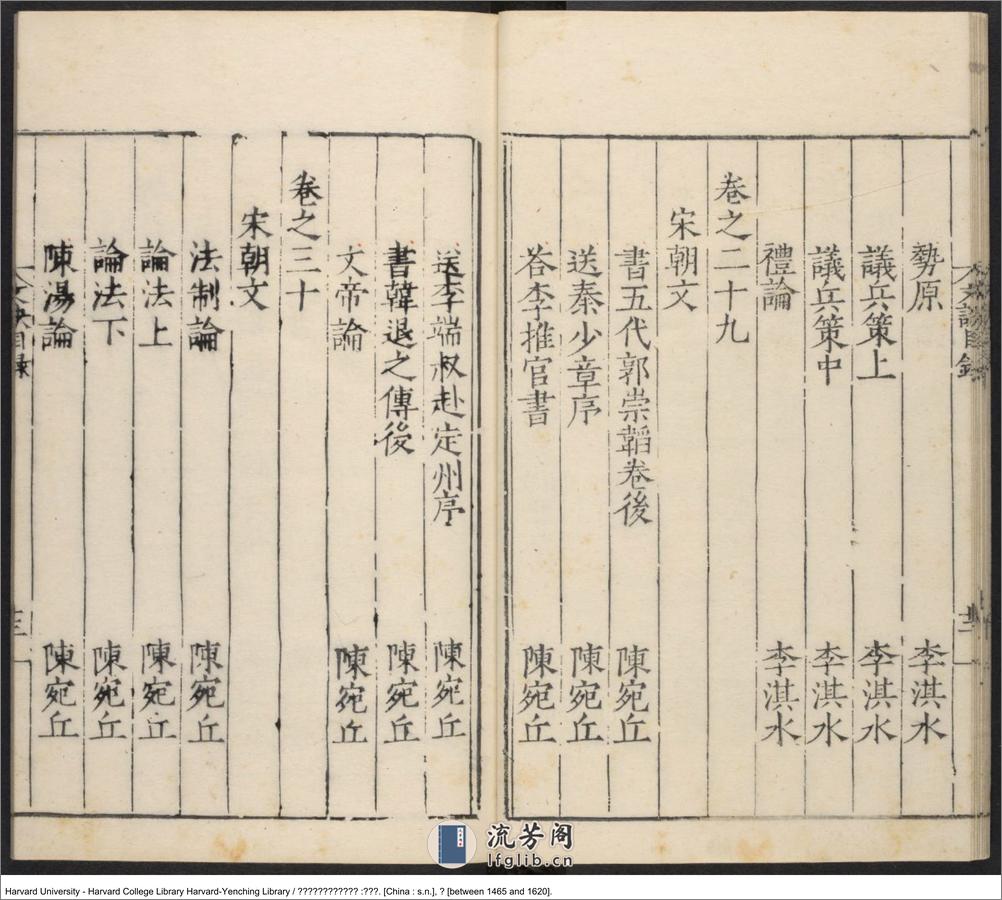 勢原 李淇水
議兵策上 李淇水
議兵策中 李淇水
禮論 李淇水
卷之二十九
宋朝文
書五代郭崇韜卷後 陳宛丘
送秦少章序 陳宛丘
荅李推官書 陳宛丘
送李端叔赴定州序 陳宛丘
書韓退之傳後 陳宛丘
文帝論 陳宛丘
卷之三十
宋朝文
法制論 陳宛丘
論法上 陳宛丘
論法下 陳宛丘
陳湯論 陳宛丘
流芳阁
lfglib.cn
Harvard University - Harvard College Library Harvard-Yenching Library / ???????????? :???. [China : s.n.], ? [between 1465 and 1620].